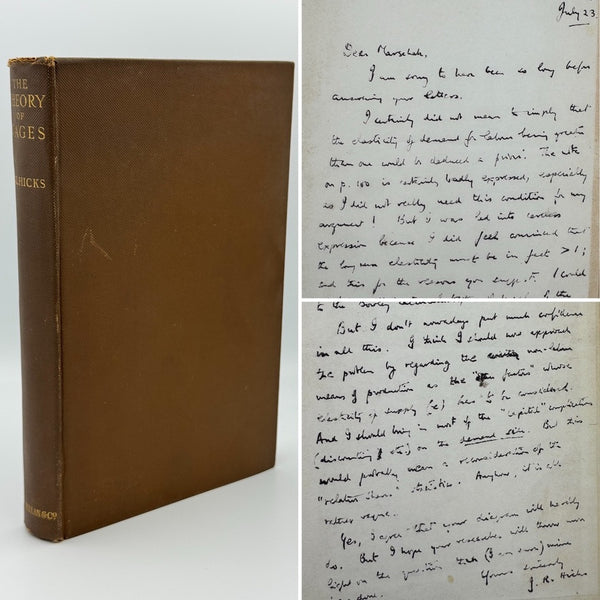 THE
THEORY
OF
WAGES
HICKS
July 23
Dear Marschak,
I am sorry to have been so long before
answering your letters.
I certainly did not mean to imply that
the elasticity of demand for labour being greater
than one could be deduced a priori. The note
on p. 100 is certainly badly expressed, especially
as I did not really need this condition for my
argument! But I was led into careless
expression because I did feel convinced that
the long run elasticity must be in fact > 1;
and this for the reasons you suggest. I could
But I don't nowadays put much confidence
in all this. I think I should now approach
the problem by regarding the non-labour
means of production as the "factors" whose
elasticity of supply (e) has to be considered.
And I should bring in most of the "capital" complications
(discounting etc) on the demand side. But this
would probably mean a reconsideration of the
"relative share" statistics. Anyhow, it is all
rather vague.
Yes, I agree that your diagram will
do. But I hope your researches will throw more
light on the question than (I am sure) mine
have done.
Yours sincerely
J. R. Hicks